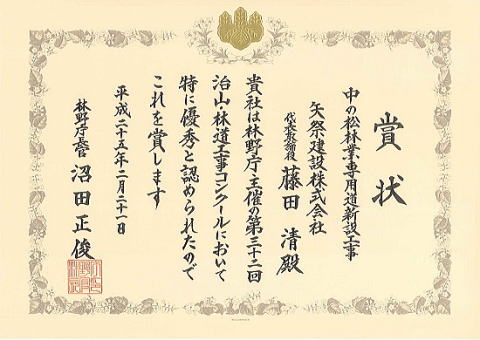 賞状
中の松林業専用道新設工事
矢祭建設株式会社
代表取締役 藤田 清殿
貴社は林野庁主催の第三十二回
治山・林道工事コンクールにおいて
特に優秀と認められたので
これを賞します
平成二十五年二月二十一日
林野庁長官 沼田正俊